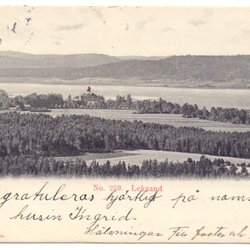 No. 259. Leksand
gratuleras hjärtlig på namns
husin Ingrid.
Hälsningar från faster och